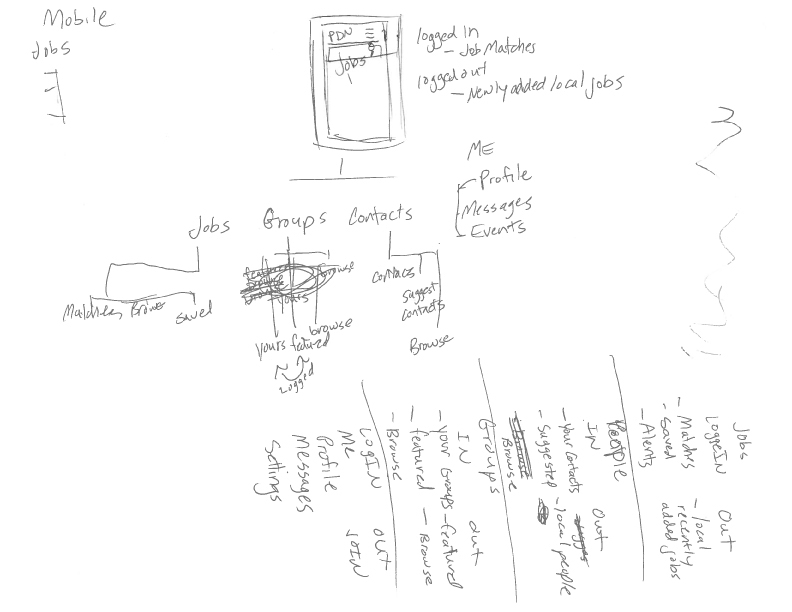 Mobile
Jobs
PDN
Jobs
logged in
- Job Matches
logged out
- Newly added local jobs
ME
- Profile
- Messages
- Events
Jobs
Groups
Contacts
Matches
Browse
Saved
browse
yours
yours
featured
browse
Logged
contacts
suggest
contacts
Browse
Jobs
LoggeIN
- Matches
- Saved
- Alerts
Out
- local
recently
added jobs
People
IN
- Your Contacts
- Suggested
Browse
Out
- local people
Groups
IN
- Your Groups
- featured
- Browse
Out
- featured
- Browse
LogIN
Me
Profile
Messages
Settings
Out
JOIN